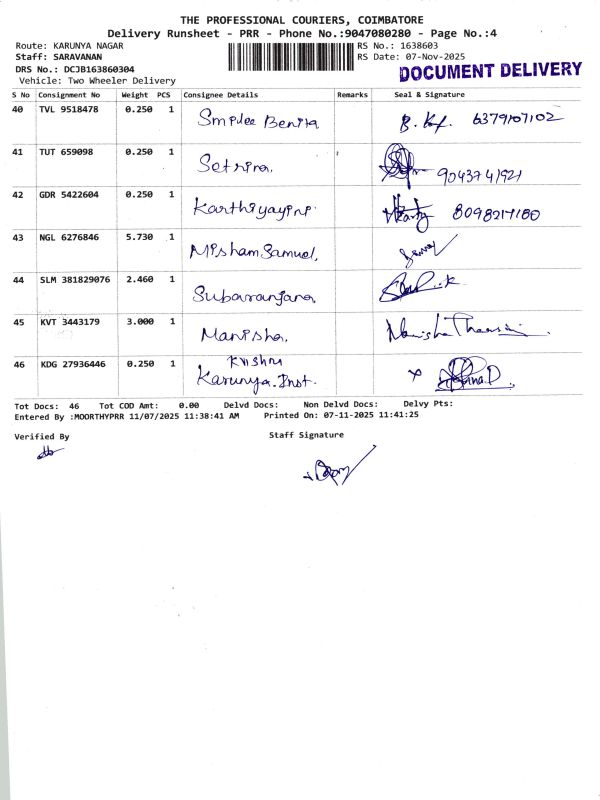 THE PROFESSIONAL COURIERS, COIMBATORE
Delivery Runsheet - PRR - Phone No.:9047080280 - Page No.:4
Route: KARUNYA NAGAR RS No.: 1638603
Staff: SARAVANAN RS Date: 07-Nov-2025
DRS No.: DCJB163860304 DOCUMENT DELIVERY
Vehicle: Two Wheeler Delivery
S No Consignment No Weight PCS Consignee Details Remarks Seal & Signature
40 TVL 9518478 0.250 1 Benita 6379107102
41 TUT 659098 0.250 1 9043741921
42 GDR 5422604 0.250 1 Karthiyayini 8098217180
43 NGL 6276846 5.730 1 Misham Samuel.
44 SLM 381829076 2.460 1 Subaranjana
45 KVT 3443179 3.000 1 Manisha.
46 KDG 27936446 0.250 1 Krishna
Karunya. Inst.
Tot Docs: 46 Tot COD Amt: 0.00 Delvd Docs: Non Delvd Docs: Delvy Pts:
Entered By :MOORTHYPRR 11/07/2025 11:38:41 AM Printed On: 07-11-2025 11:41:25
Verified By Staff Signature